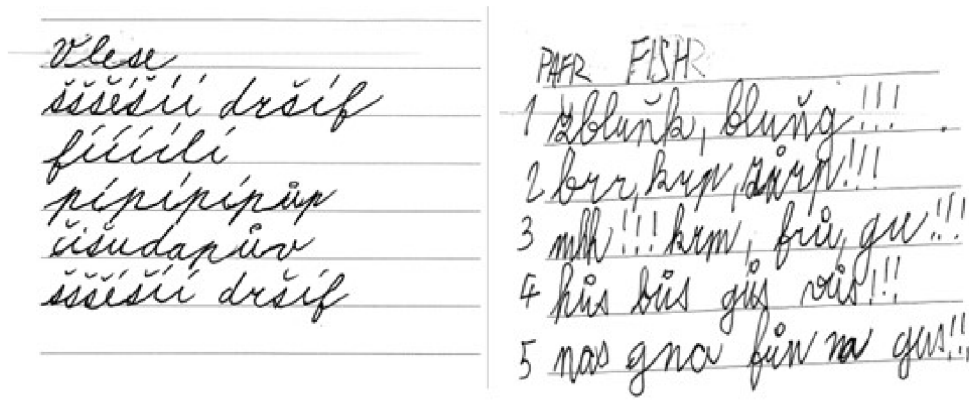 V lese
šššéšíí dršíf
fíííílí
pípípípůp
čišudapův
šššéšíí dršíf
PAFR FISHR
1 zbluňk, bluňg!!!
2 brr, krp, zůrp!!!
3 mhh!!! krm, frů, gu!!!
4 hůs bůs gůs vůs!!!
5 nas gna fůn na gus!!!